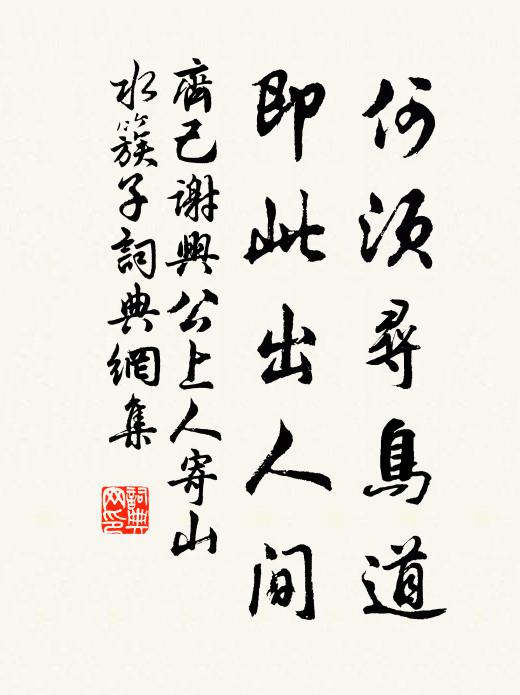 何須尋鳥道
即此出人間
齊己謝興公上人寄山
水簇子詞典網集
詞典网印